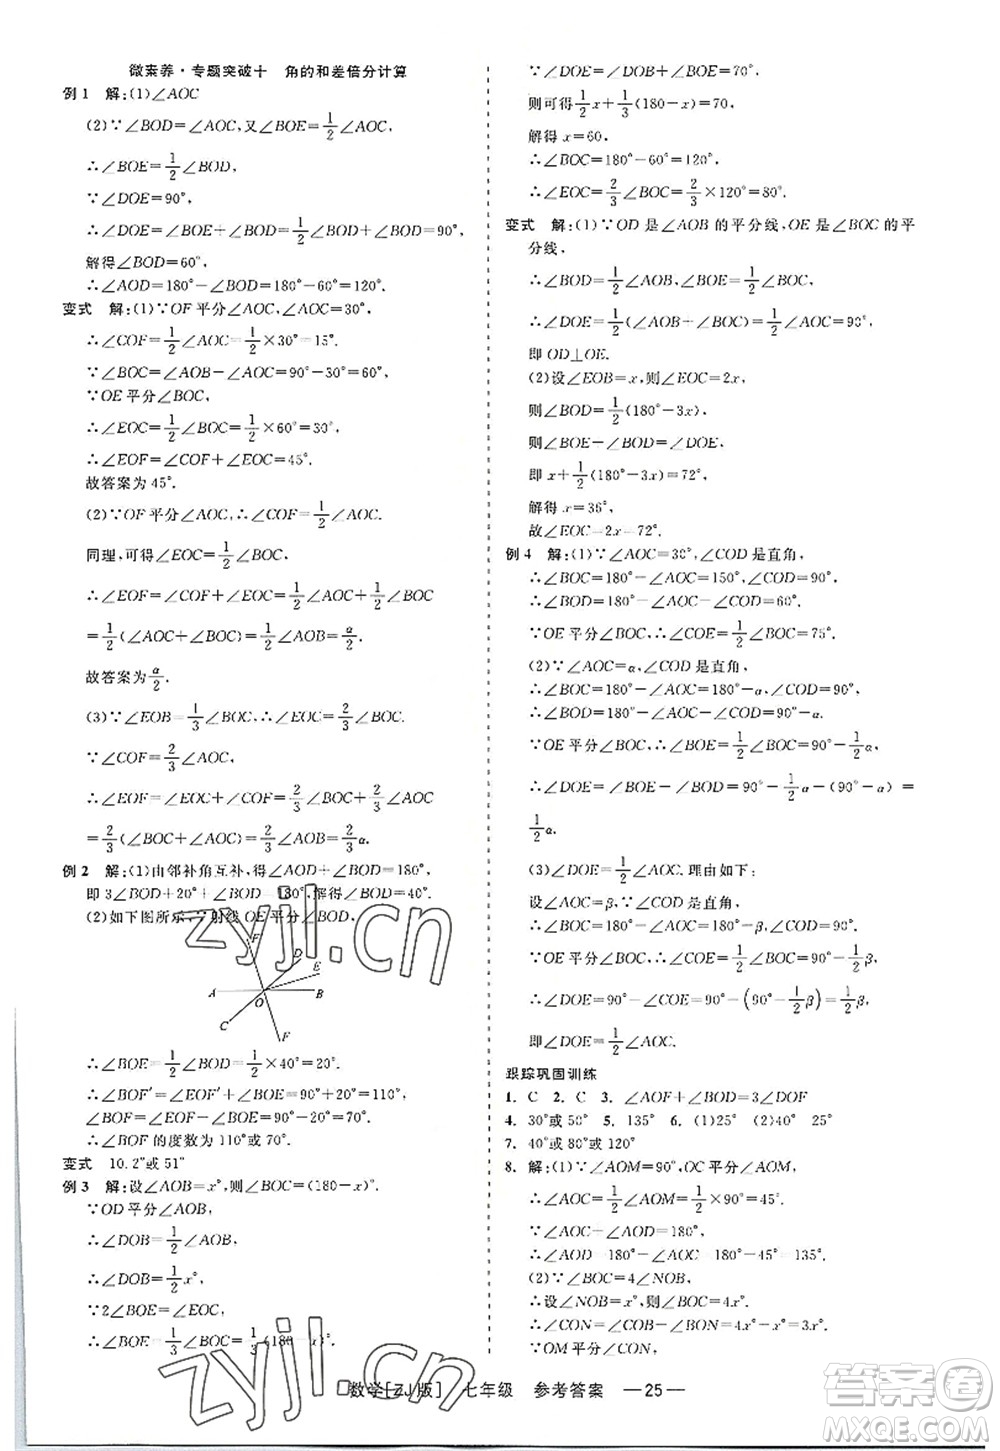 微素养·专题突破十　角的和差倍分计算
例1　解:(1)∠AOC
(2)∵∠BOD=∠AOC,又∠BOE=1/2∠AOC,
∴∠BOE=1/2∠BOD,
∵∠DOE=90°,
∴∠DOE=∠BOD+1/2∠BOD=90°,
解得∠BOD=60°,
∴∠AOD=180°-∠BOD=180°-60°=120°.
变式　解:(1)∵OF平分∠AOC,∠AOC=30°,
∴∠COF=1/2∠AOC=1/2×30°=15°.
∵∠BOC=∠AOB-∠AOC=90°-30°=60°,
∵OE平分∠BOC,
∴∠EOC=1/2∠BOC=1/2×60°=30°,
∴∠EOF=∠COF+∠EOC=45°.
故答案为45°.
(2)∵OF平分∠AOC,∴∠COF=1/2∠AOC.
同理,可得∠EOC=1/2∠BOC,
∴∠EOF=∠COF+∠EOC=1/2∠AOC+1/2∠BOC
=1/2(∠AOC+∠BOC)=1/2∠AOB=α/2.
故答案为α/2.
(3)∵∠EOB=1/3∠BOC,∴∠EOC=2/3∠BOC.
∵∠COF=2/3∠AOC,
∴∠EOF=∠EOC+∠COF=2/3∠BOC+2/3∠AOC
=2/3(∠BOC+∠AOC)=2/3∠AOB=2/3α.
例2　解:(1)由邻补角互补,得∠AOD+∠BOD=180°,
即3∠BOD+20°+∠BOD=180°,解得∠BOD=40°.
(2)如下图所示,∵射线OE平分∠BOD,
F′
D
E
A
O
B
C
F
∴∠BOE=1/2∠BOD=1/2×40°=20°.
∴∠BOF′=∠EOF′+∠BOE=90°+20°=110°,
∠BOF=∠EOF-∠BOE=90°-20°=70°,
∴∠BOF的度数为110°或70°.
变式　10.2°或51°
例3　解:设∠AOB=x°,则∠BOC=(180-x)°.
∵OD平分∠AOB,
∴∠DOB=1/2∠AOB,
∴∠DOB=1/2x°,
∵2∠BOE=∠EOC,
∴∠BOE=1/3∠BOC=1/3(180-x)°.
∵∠DOB+∠BOE=∠DOE=70°,
则可得1/2x+1/3(180-x)=70,
解得x=60,
∴∠BOC=180°-60°=120°,
∴∠EOC=2/3∠BOC=2/3×120°=80°.
变式　解:(1)∵OD是∠AOB的平分线,OE是∠BOC的平
分线,
∴∠BOD=1/2∠AOB,∠BOE=1/2∠BOC,
∴∠DOE=1/2(∠AOB+∠BOC)=1/2∠AOC=90°,
即OD⊥OE.
(2)设∠EOB=x,则∠EOC=2x,
则∠BOD=1/2(180°-3x),
∵∠BOE+∠BOD=∠DOE,
即x+1/2(180°-3x)=72°,
解得x=36°,
故∠EOC=2x=72°.
例4　解:(1)∵∠AOC=30°,∠COD是直角,
∴∠BOC=180°-∠AOC=150°,∠COD=90°,
∴∠BOD=180°-∠AOC-∠COD=60°.
∵OE平分∠BOC,∴∠COE=1/2∠BOC=75°.
(2)∵∠AOC=α,∠COD是直角,
∴∠BOC=180°-∠AOC=180°-α,∠COD=90°,
∴∠BOD=180°-∠AOC-∠COD=90°-α.
∵OE平分∠BOC,∴∠BOE=1/2∠BOC=90°-1/2α,
∴∠DOE=∠BOE-∠BOD=90°-1/2α-(90°-α)=
1/2α.
(3)∠DOE=1/2∠AOC.理由如下:
设∠AOC=β,则∠BOC=180°-β,
∴∠BOC=180°-∠AOC=180°-β,∠COD=90°.
∵OE平分∠BOC,∴∠COE=1/2∠BOC=90°-1/2β,
∴∠DOE=∠COD-∠COE=90°-(90°-1/2β)=1/2β,
即∠DOE=1/2∠AOC.
跟踪巩固训练
1. C　2. C　3. ∠AOF+∠BOD=3∠DOF
4. 30°或50°　5. 135°　6. (1)25°　(2)40°　25°
7. 40°或80°或120°
8. 解:(1)∵∠AOM=90°,OC平分∠AOM,
∴∠AOC=1/2∠AOM=1/2×90°=45°.
∵∠AOC+∠AOD=180°,
∴∠AOD=180°-∠AOC=180°-45°=135°.
(2)∵∠BOC=4∠NOB,
∴设∠NOB=x°,则∠BOC=4x°,
∴∠CON=∠BOC-∠BON=4x°-x°=3x°.
∵OM平分∠CON,
数学[ZJ版]　七年级　参考答案　—25—
zyjl.cn
zyjl.cn
作业精灵
MXQE.COM